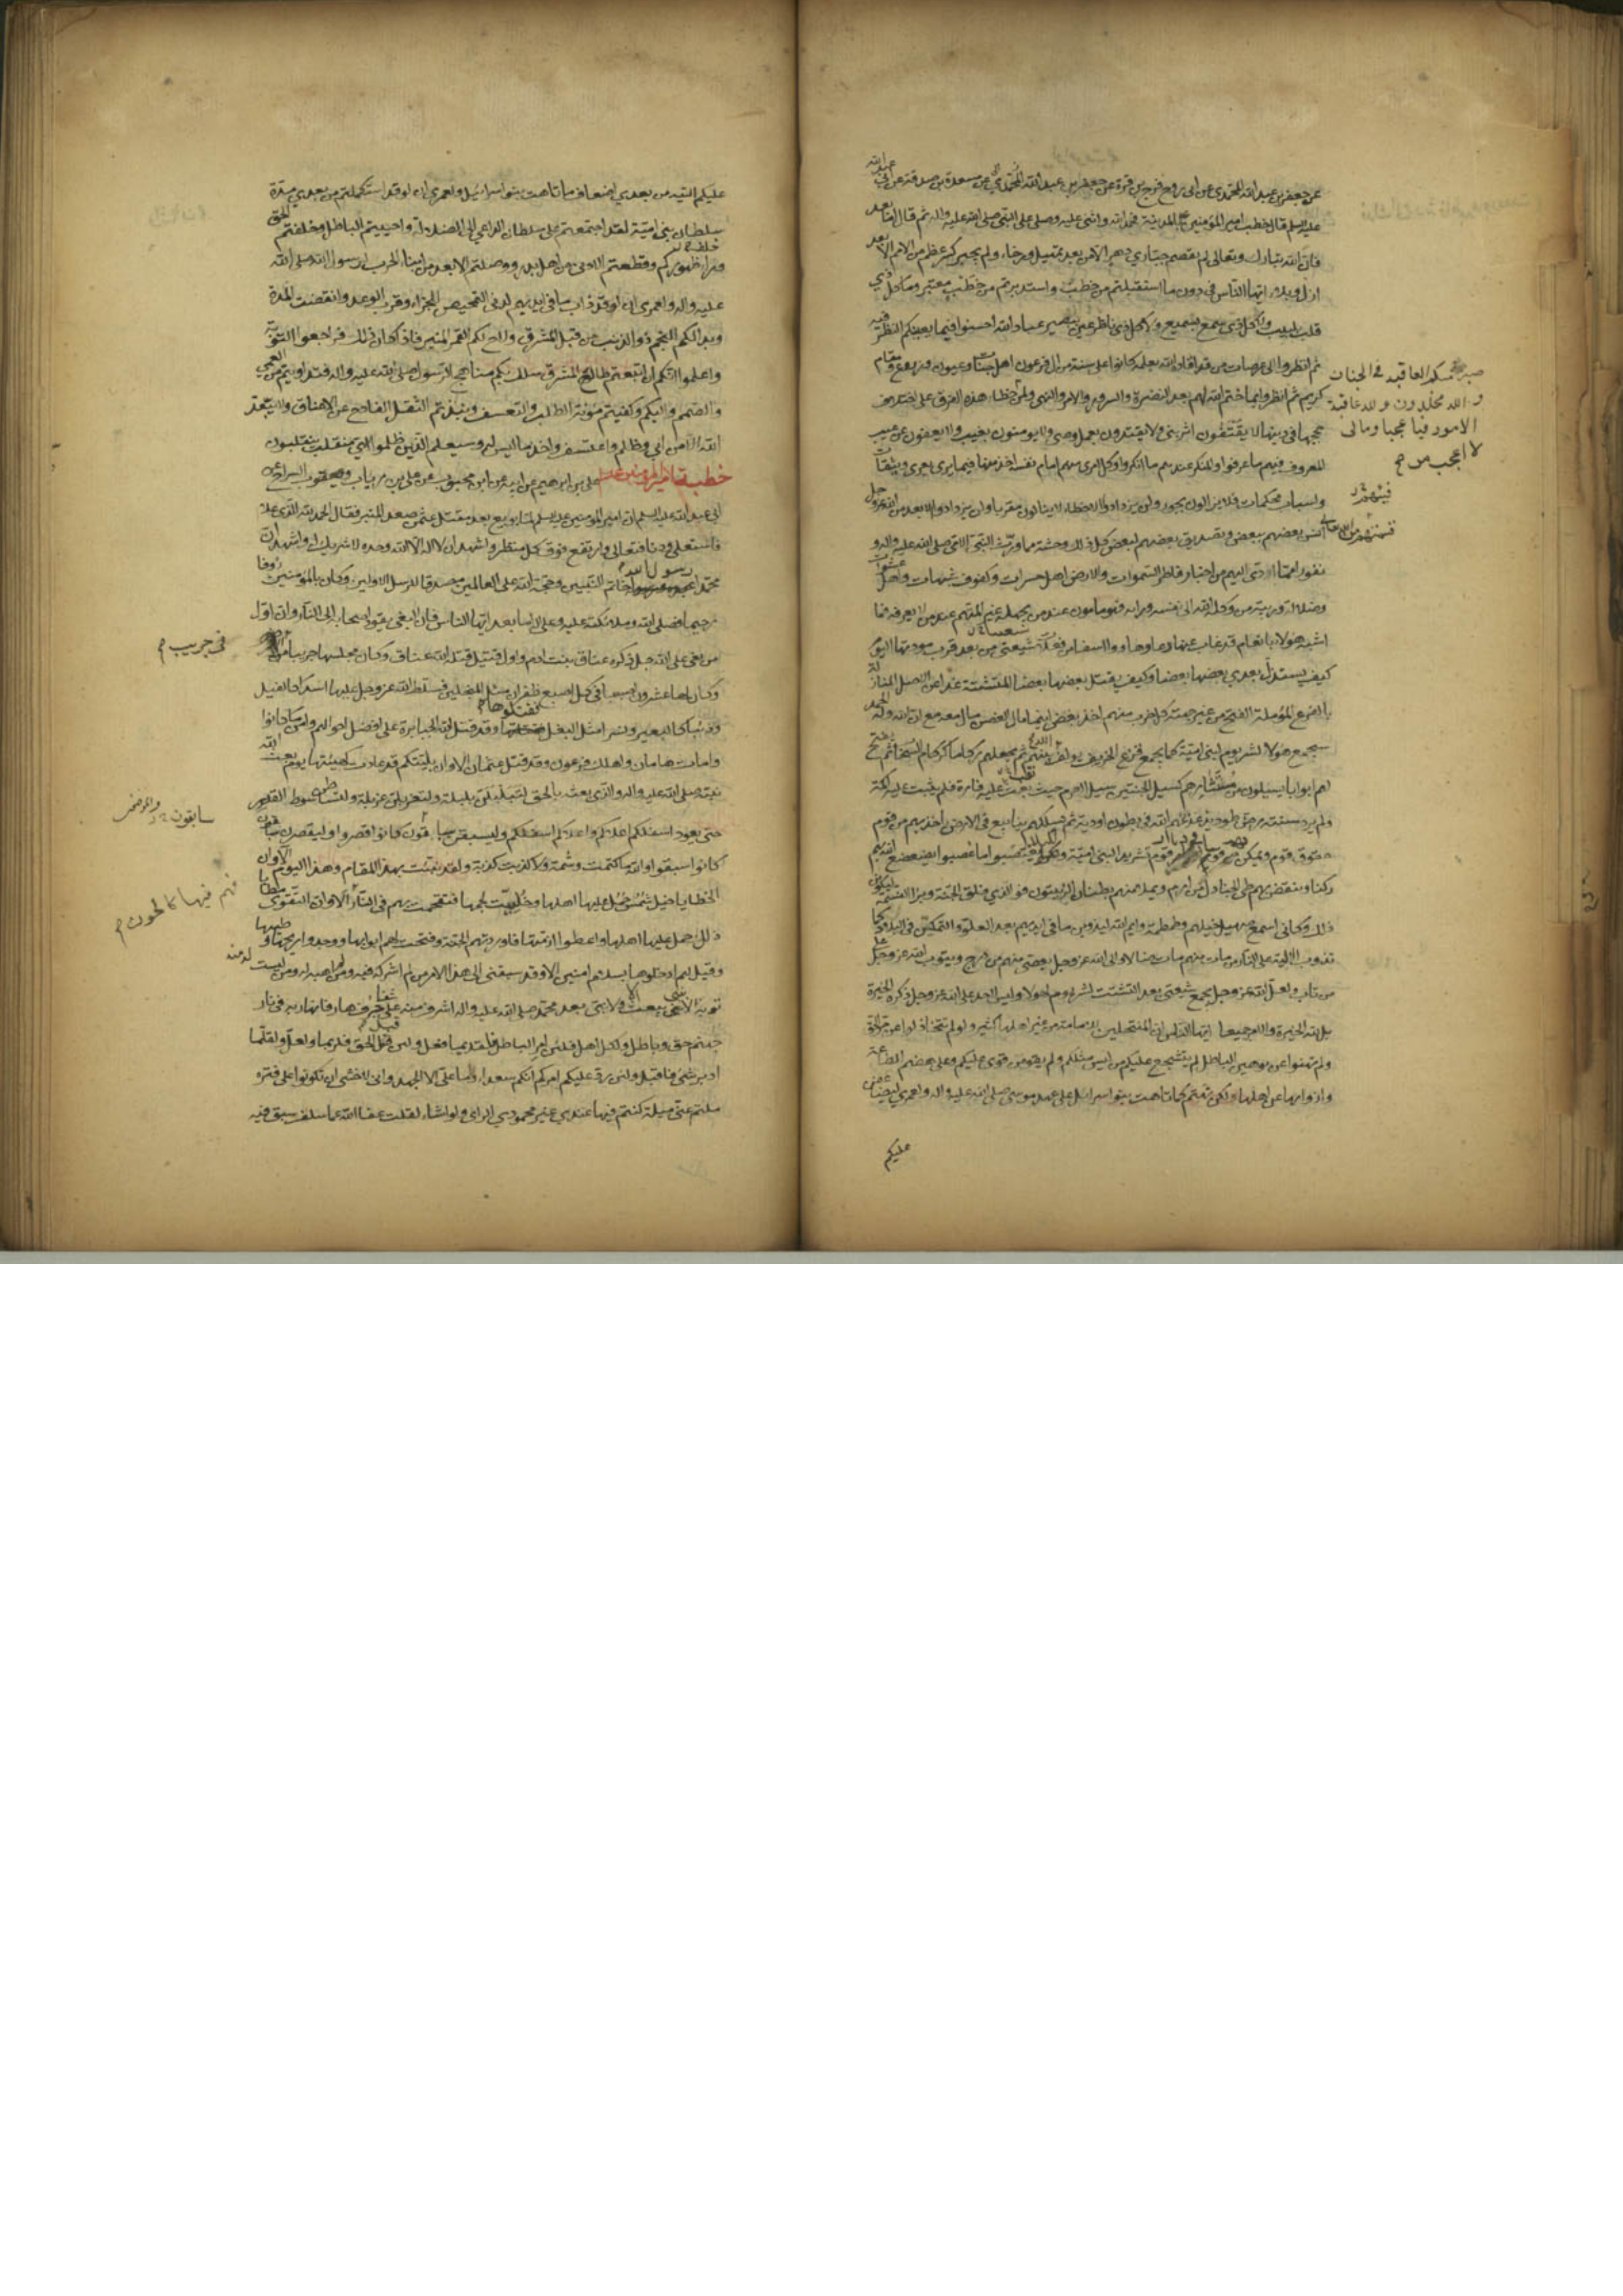 عن جعفر بن عبد الله المحمدي عن ابي روح فرج بن قرة عن جعفر بن عبد الله عن مسعدة بن صدقة عن ابي عبد الله
عليه السلم قال خطب امير المؤمنين بالمدينة فحمد الله واثنى عليه وصلى على النبي صلى الله عليه واله ثم قال اما بعد
فان الله تبارك وتعالى لم يقصم جباري دهر الا من بعد تمهيل ورخاء ولم يجبر كسر عظم من الامم الا بعد
ازل وبلاء ايها الناس في دون ما استقبلتم من خطب واستدبرتم من خطب معتبر وما كل ذي
قلب بلبيب ولا كل ذي سمع بسميع ولا كل ذي ناظر عين ببصير عباد الله احسنوا فيما يعنيكم النظر فيه
ثم انظروا الى عرصات من قد اقاده الله بعلمه كانوا على سنة من ال فرعون اهل جنات وعيون وزروع ومقام
كريم ثم انظروا بما ختم الله لهم بعد النضرة والسرور والامر والنهي ولمن
صبر منكم العاقبة في الجنان
و الله مخلدون و لله عاقبة
الامور فيا عجبا ومالي
لا اعجب من
خطا هذه الفرق على اختلاف
حججها في دينها لا يقتفون اثر نبي ولا يقتدون بعمل وصي ولا يؤمنون بغيب ولا يعفون عن عيب
المعروف فيهم ما عرفوا والمنكر عندهم ما انكروا وكل امرئ منهم امام نفسه اخذ منها فيما يرى بعرى وثيقات
واسباب محكمات فلا يزالون بجور ولن يزدادوا الا خطاء لا ينالون تقربا ولن يزدادوا الا بعدا من الله عز وجل
انس بعضهم ببعض وتصديق بعضهم لبعض كل ذلك وحشة مما ورث النبي الامي صلى الله عليه واله و
نفورا مما ادى اليهم من اخبار فاطر السموات والارض اهل حسرات وكهوف شبهات واهل عشوات
وضلالة وريبة من وكله الله الى نفسه ورايه فهو مامون عند من يجهله غير المتهم عند من لا يعرفه فما
اشبه هؤلاء بانعام قد غاب عنها رعاؤها وواسفا من فعلات شيعتي من بعد قرب مودتها اليوم
كيف يستذل بعدي بعضها بعضا وكيف يقتل بعضها بعضا المتشتتة غدا عن الاصل النازلة
بالفرع المؤملة الفتح من غير جهته كل حزب منهم اخذ بغصن اينما مال الغصن مال معه مع ان الله وله الحمد
سيجمع هؤلاء لشر يوم لبني امية كما يجمع قزع الخريف يؤلف الله بينهم ثم يجعلهم ركاما كركام السحاب ثم يفتح
لهم ابوابا يسيلون من مستثارهم كسيل الجنتين سيل العرم حيث بعث عليه فارة فلم يثبت عليه اكمة
ولم يرد سننه رص طود يذعذعهم الله في بطون اودية ثم يسلكهم ينابيع في الارض ياخذ بهم من قوم
حقوق قوم ويمكن
ركنا وينقض بهم طي الجنادل من ارم ويملا منهم بطنان الزيتون فوالذي فلق الحبة وبرا النسمة ليكونن
ذلك وكاني اسمع صهيل خيلهم وطمطمة وايم الله ليذوبن ما في ايديهم بعد العلو والتمكين في البلاد كما
تذوب الالية على النار من مات منهم مات ضالا والى الله عز وجل يفضي منهم من درج ويتوب الله عز وجل على
من تاب ولعل الله عز وجل يجمع شيعتي بعد التشتت لشر يوم لهؤلاء وليس لاحد على الله عز وجل ذكره الخيرة
بل لله الخيرة والامر جميعا ايها الناس ان المنتحلين للامامة من غير اهلها كثير ولو لم تتخاذلوا عن مر الحق
ولم تهنوا عن توهين الباطل لم يتشجع عليكم من ليس مثلكم ولم يقو من قوي عليكم وعلى هضم الطاعة
وازوائها عن اهلها ولكن تهتم كما تاهت بنو اسرائيل على عهد موسى صلى الله عليه واله ولعمري ليضاعفن
عليكم
عليكم التيه من بعدي اضعاف ما تاهت بنو اسرائيل ولعمري ان لو قد استكملتم من بعدي مدة
سلطان بني امية لقد اجتمعتم على سلطان الداعي الى الضلالة واحييتم الباطل وخلفتم الحق
وراء ظهوركم وقطعتم الادنى من اهل بدر ووصلتم الابعد من ابناء الحرب لرسول الله صلى الله
عليه واله ولعمري ان لو قد ذاب ما في ايديهم لدنى التمحيص للجزاء وقرب الوعد وانقضت المدة
وبدا لكم النجم ذو الذنب من قبل المشرق ولاح لكم القمر المنير فاذا كان ذلك فراجعوا التوبة
واعلموا انكم ان اتبعتم طالع المشرق سلك بكم مناهج الرسول صلى الله عليه واله فتداويتم من العمى
والصمم والبكم وكفيتم مؤنة الطلب والتعسف ونبذتم الثقل الفادح عن الاعناق ولا يبعد
الله الا من ابى وظلم واعتسف واخذ ما ليس له وسيعلم الذين ظلموا اي منقلب ينقلبون
خطبة لامير المؤمنين علي بن ابرهيم عن ابيه عن ابن محبوب عن علي بن رياب ويعقوب السراج عن
ابي عبد الله عليه السلم ان امير المؤمنين عليه السلم لما بويع بعد مقتل عثمن صعد المنبر فقال الحمد لله الذي علا
فاستعلى ودنا فتعالى وارتفع فوق كل منظر واشهد ان لا اله الا الله وحده لا شريك له واشهد ان
محمدا رسول الله خاتم النبيين وحجة الله على العالمين مصدقا للرسل الاولين وكان بالمؤمنين رؤفا
رحيما فصلى الله وملائكته عليه وعلى اله اما بعد ايها الناس فان البغي يقود اصحابه الى النار وان اول
من بغى على الله جل ذكره عناق بنت ادم واول قتيل قتله الله عناق وكان مجلسها جريبا من الارض
في جريب
وكان لها عشرون اصبعا في كل اصبع ظفران مثل المنجلين فسلط الله عز وجل عليها اسدا كالفيل
وذئبا كالبعير ونسرا مثل البغل فقتلوها وقد قتل الله الجبابرة على افضل احوالهم وامن ما كانوا
وامات هامان واهلك فرعون وقد قتل عثمان الا وان بليتكم قد عادت كهيئتها يوم بعث الله
نبيه صلى الله عليه واله والذي بعثه بالحق لتبلبلن بلبلة ولتغربلن غربلة ولتساطن سوط القدر
حتى يعود اسفلكم اعلاكم واعلاكم اسفلكم وليسبقن سابقون كانوا قصروا وليقصرن سابقون
كانوا سبقوا والله ما كتمت وشمة ولا كذبت كذبة ولقد نبئت بهذا المقام وهذا اليوم الا وان
الخطايا خيل شمس حمل عليها اهلها وخلعت لجمها فتقحمت بهم في النار
فهم فيها كالحون
الا وان التقوى مطايا
ذلل حمل عليها اهلها واعطوا ازمتها فاوردتهم الجنة وفتحت لهم ابوابها ووجدوا ريحها وطيبها
وقيل لهم ادخلوها بسلام امنين الا وقد سبقني الى هذا الامر من لم اشركه فيه ومن لم اهبه له ومن ليست له منه
توبة الا بنبي يبعث الا ولا نبي بعد محمد صلى الله عليه واله اشرف منه على شفا جرف هار فانهار به في نار
جهنم حق وباطل ولكل اهل فلئن امر الباطل فلقديما فعل ولئن قل الحق فلربما ولعل ولقلما
ادبر شئ فاقبل ولئن رد عليكم امركم انكم سعداء وما علي الا الجهد واني لاخشى ان تكونوا على فترة
ملتم عني ميلة كنتم فيها عندي غير محمودي الراي ولو اشاء لقلت عفا الله عما سلف سبق فيه